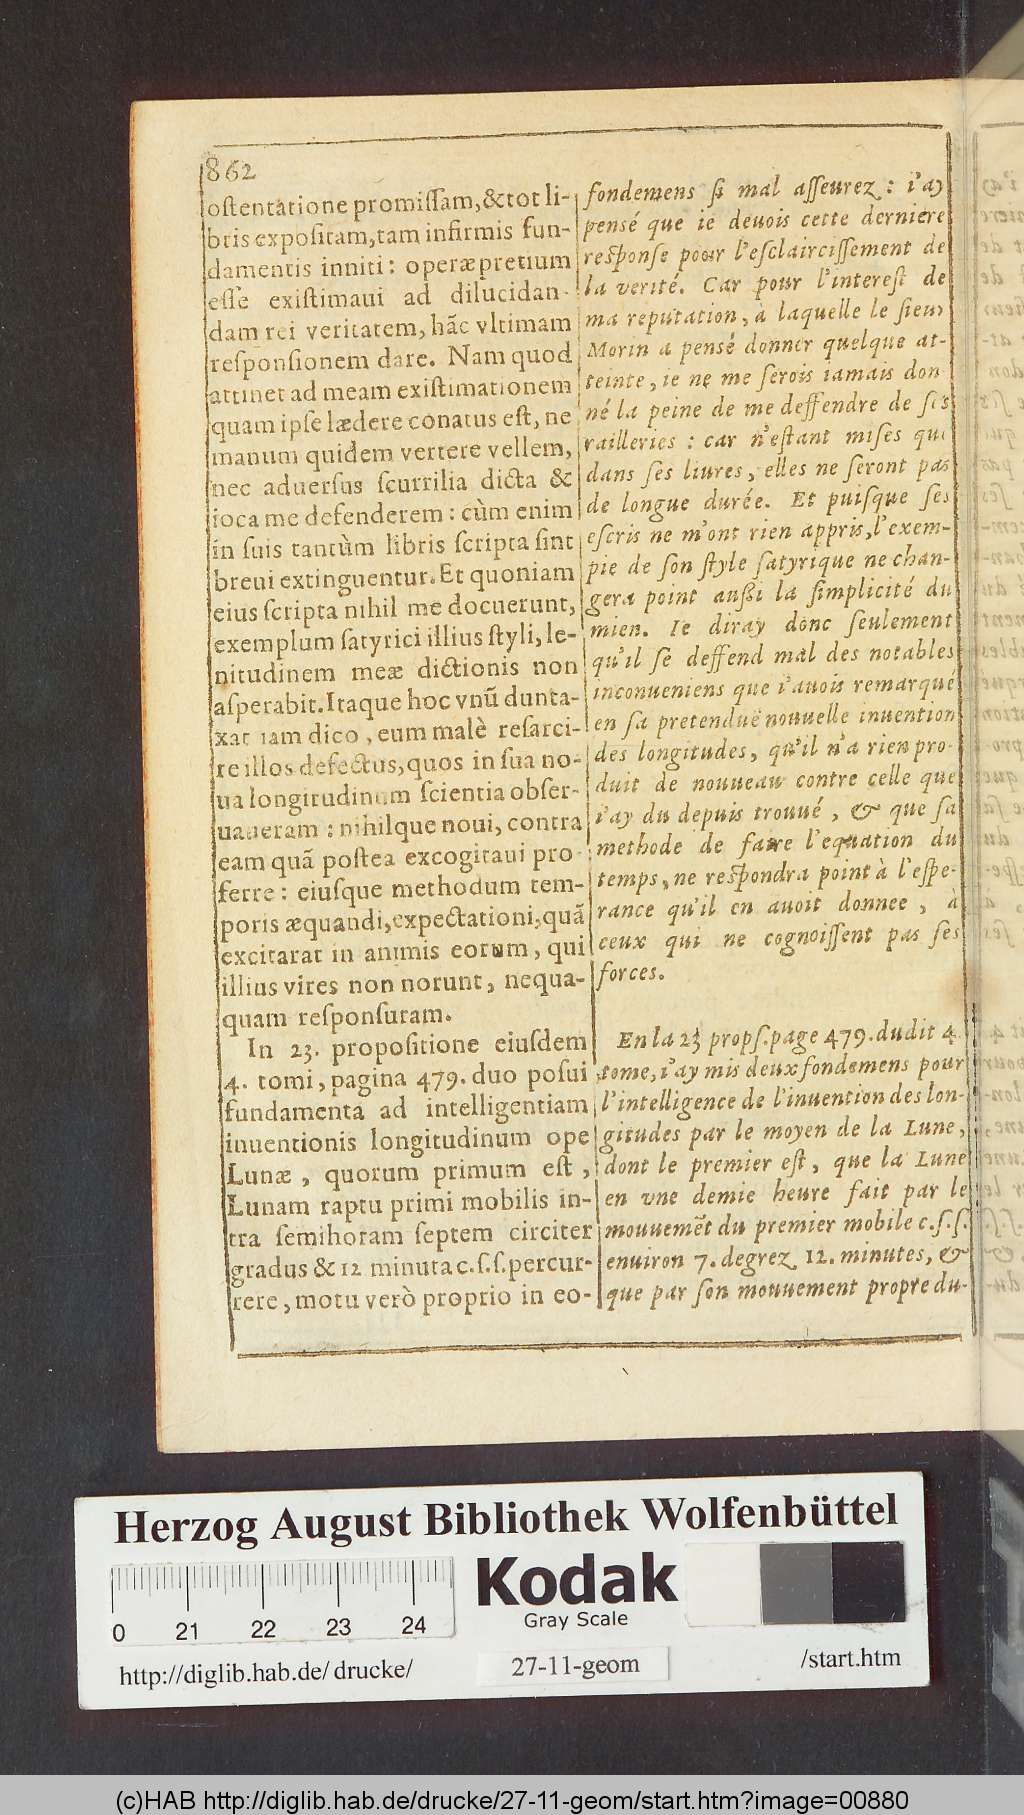 862
ostentatione promissam, & tot li-
bris expositam, tam infirmis fun-
damentis inniti: operæpretium
esse existimaui ad dilucidan-
dam rei veritatem, hãc vltimam
responsionem dare. Nam quod
attinet ad meam existimationem
quam ipse lædere conatus est, ne
manum quidem vertere vellem,
nec aduersus scurrilia dicta &
ioca me defenderem: cùm enim
in suis tantùm libris scripta sint
breui extinguentur. Et quoniam
eius scripta nihil me docuerunt,
exemplum satyrici illius styli, le-
nitudinem meæ dictionis non
asperabit. Itaque hoc vnũ dunta-
xat iam dico, eum malè resarci-
re illos defectus, quos in sua no-
ua longitudinum scientia obser-
uaueram: nihilque noui, contra
eam quã postea excogitaui pro-
ferre: eiusque methodum tem-
poris æquandi, expectationi, quã
excitarat in animis eorum, qui
illius vires non norunt, nequa-
quam responsuram.
In 23. propositione eiusdem
4. tomi, pagina 479. duo posui
fundamenta ad intelligentiam
inuentionis longitudinum ope
Lunæ, quorum primum est,
Lunam raptu primi mobilis in-
tra semihoram septem circiter
gradus & 12 minuta c.s.s. percur-
rere, motu verò proprio in eo-
fondemens si mal asseurez : i'ay
pensé que ie deuois cette derniere
response pour l'esclaircissement de
la verité. Car pour l'interest de
ma reputation, à laquelle le sieur
Morin a pensé donner quelque at-
teinte, ie ne me serois iamais don-
né la peine de me deffendre de ses
railleries : car n'estant mises que
dans ses liures, elles ne seront pas
de longue durée. Et puisque ses
escris ne m'ont rien appris, l'exem-
ple de son style satyrique ne chan-
gera point aussi la simplicité du
mien. Ie diray donc seulement
qu'il se deffend mal des notables
inconueniens que i'auois remarque
en sa pretenduë nouuelle inuention
des longitudes, qu'il n'a rien pro-
duit de nouueau contre celle que
i'ay du depuis trouué, & que sa
methode de faire l'equation du
temps, ne respondra point à l'espe-
rance qu'il en auoit donnee, a
ceux qui ne cognoissent pas ses
forces.
En la 23 props. page 479. dudit 4
tome, i'ay mis deux fondemens pour
l'intelligence de l'inuention des lon-
gitudes par le moyen de la Lune,
dont le premier est, que la Lune
en vne demie heure fait par le
mouuemẽt du premier mobile c.s.s.
enuiron 7. degrez 12. minutes, &
que par son mouuement propre du-
Herzog August Bibliothek Wolfenbüttel
0 21 22 23 24
Kodak
Gray Scale
http://diglib.hab.de/drucke/
27-11-geom
/start.htm
(c)HAB http://diglib.hab.de/drucke/27-11-geom/start.htm?image=00880